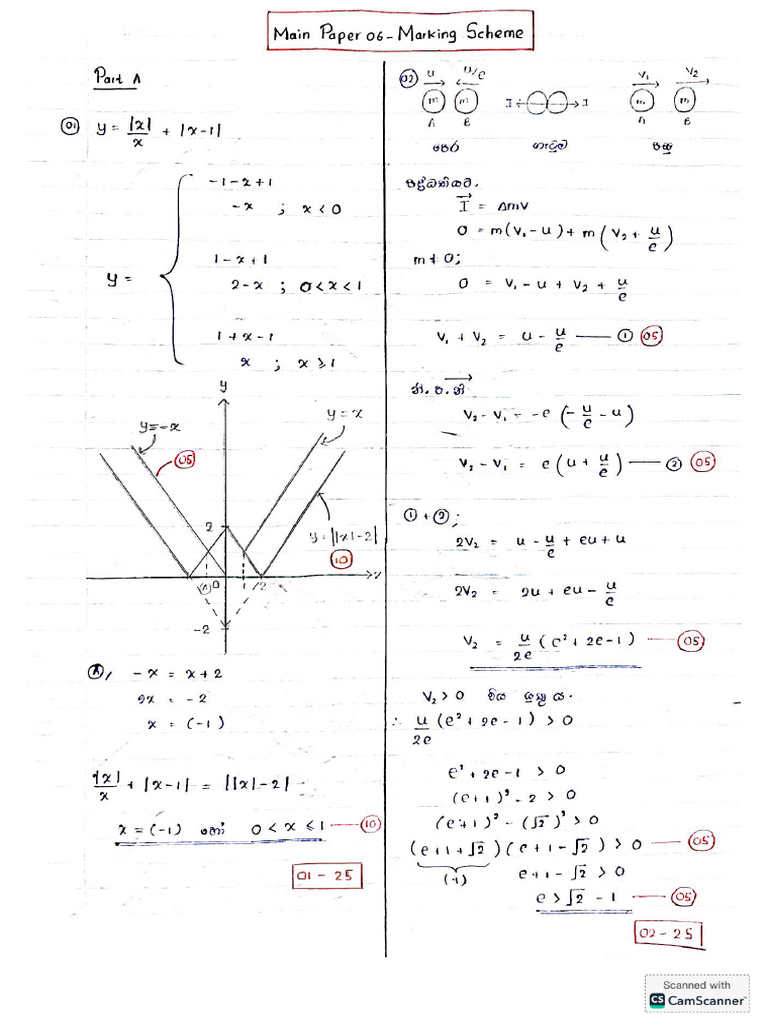 Main Paper 06 - Marking Scheme
Part A
01 y = |x|/x + |x-1|
y =
-1-x+1
-x ; x<0
1-x+1
2-x ; 0<x<1
1+x-1
x ; x≥1
y
y=-x
y=x
05
2
y=||x|-2|
10
A 0 2 x
-2
A, -x = x+2
2x = -2
x = (-1)
|x|/x + |x-1| = ||x|-2|
x = (-1) හෝ 0<x≤1 — 10
01 - 25
02 u u/e v₁ v₂
m m I I m m
A B A B
පෙර ගැටුම පසු
පද්ධතියට,
I = Δmv
0 = m(v₁-u) + m(v₂ + u/e)
m≠0;
0 = v₁ - u + v₂ + u/e
v₁ + v₂ = u - u/e — ① 05
නි. ප. නි
v₂ - v₁ = -e(-u/e - u)
v₂ - v₁ = e(u + u/e) — ② 05
① + ②;
2v₂ = u - u/e + eu + u
2v₂ = 2u + eu - u/e
v₂ = u/2e (e² + 2e - 1) — 05
v₂ > 0 විය යුතු ය.
∴ u/2e (e² + 2e - 1) > 0
e² + 2e - 1 > 0
(e+1)² - 2 > 0
(e+1)² - (√2)² > 0
(e+1+√2)(e+1-√2) > 0 — 05
(+) e+1-√2 > 0
e > √2 - 1 — 05
02 - 25
Scanned with
CS CamScanner